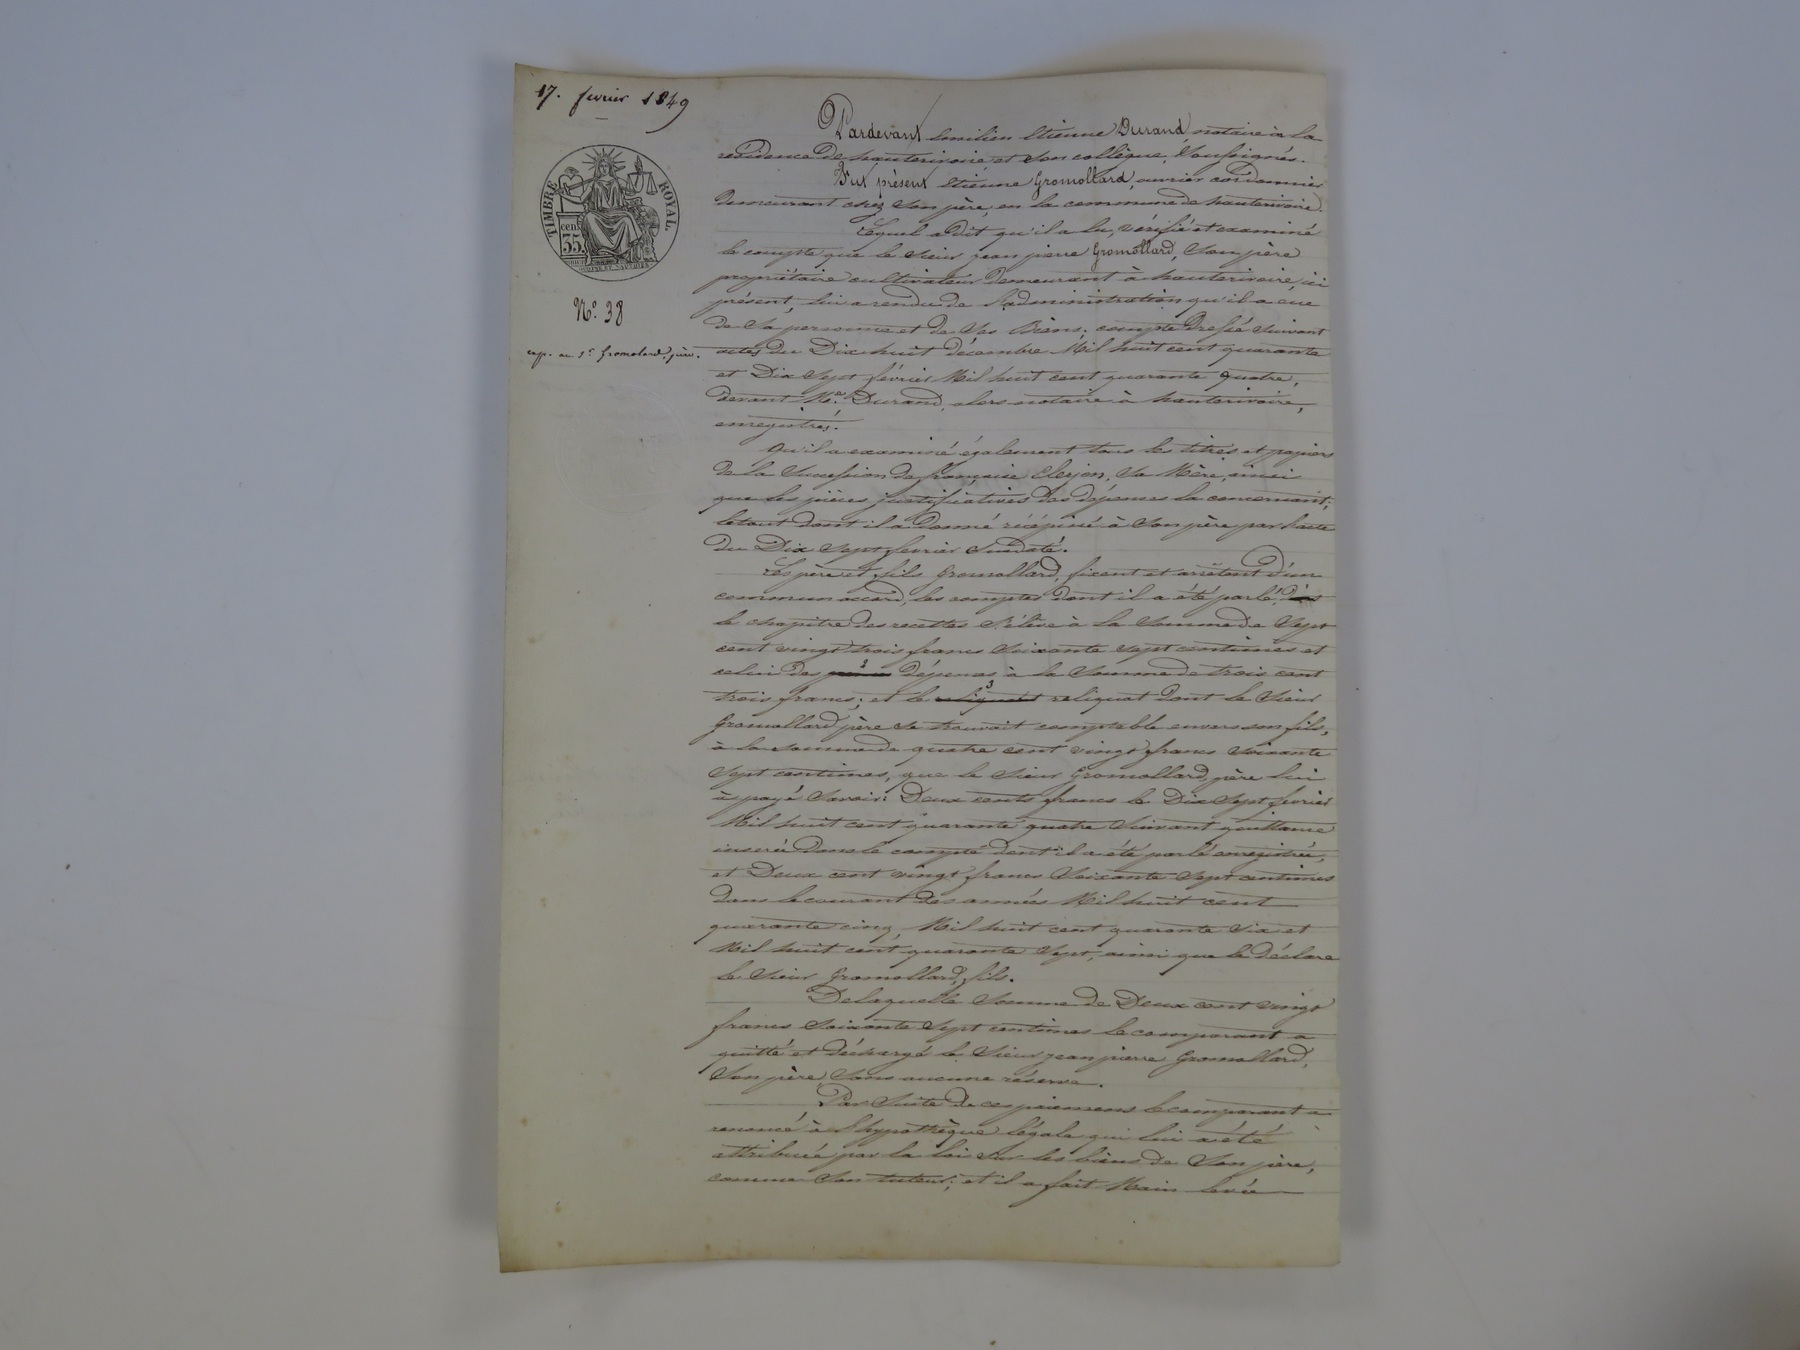 17. fevrier 1849
TIMBRE ROYAL.
cent.
35
N.º 38
exp. au S.r Gromolard, père.
Pardevant Emilien Etienne Durand notaire à la
résidence de hauterivoire et son collègue, soussignés.
Fut présent Etienne Gromollard, ouvrier cordonnier
demeurant chez son père, en la commune de hauterivoire.
Lequel a dit qu'il a lu, vérifié et examiné
le compte que le sieur jean pierre Gromollard, son père
propriétaire cultivateur demeurant à hauterivoire, ici
présent, lui a rendu de l'administration qu'il a eue
de sa personne et de ses biens; compte dressé suivant
actes des Dix huit décembre Mil huit cent quarante
et Dix sept février Mil huit cent quarante quatre,
devant M.e Durand, alors notaire à hauterivoire,
enregistrés.
Qu'il a examiné également tous les titres et papiers
de la succession de françoise Clerjon, sa Mère, ainsi
que les pièces justificatives des dépenses la concernant,
le tout dont il a donné récépissé à son père par l'acte
du Dix sept fevrier susdaté.
Les père et fils Gromollard, fixent et arrêtent d'un
commun accord, les comptes dont il a été parlé,
le chapitre des recettes s'élève à la somme de sept
cent vingt trois francs soixante sept centimes et
celui des dépenses à la somme de trois cent
trois francs; et le reliquat dont le sieur
Gromollard père se trouvait comptable envers son fils,
à la somme de quatre cent vingt francs soixante
sept centimes, que le sieur Gromollard, père lui
a payé savoir: Deux cents francs le Dix sept fevrier
Mil huit cent quarante quatre suivant quittance
inserée dans le compte dont il a été parlé enregistrée,
et Deux cent vingt francs soixante sept centimes
dans le courant des années Mil huit cent
quarante cinq, Mil huit cent quarante six et
Mil huit cent quarante sept, ainsi que le déclare
le sieur Gromollard, fils.
De laquelle somme de Deux cent vingt
francs soixante sept centimes le comparant a
quitté et déchargé le sieur jean pierre Gromollard,
son père, sans aucune réserve.
Par suite de ces paiemens le comparant a
renoncé à l'hypothèque légale qui lui a été
attribuée par la loi sur les biens de son père,
comme son tuteur; et il a fait Main levée